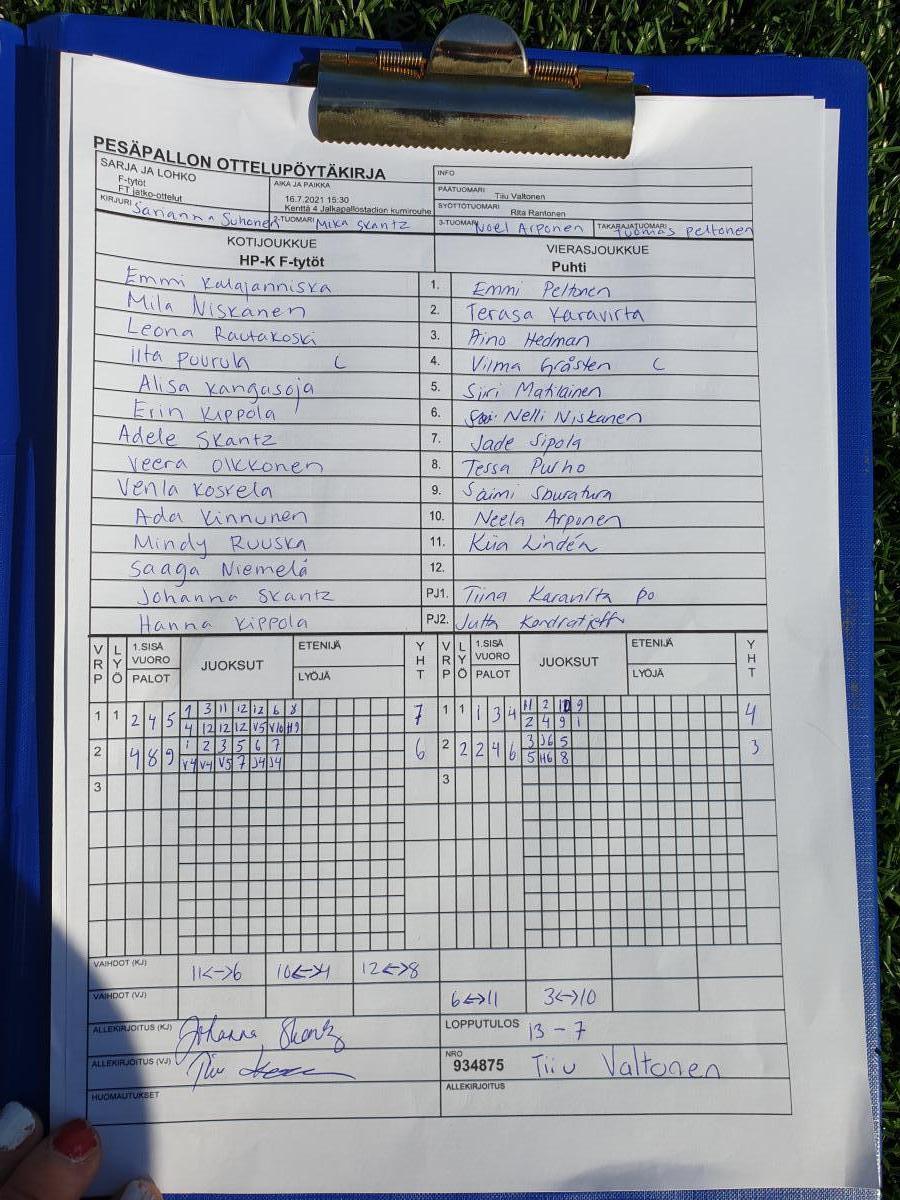 PESÄPALLON OTTELUPÖYTÄKIRJA
SARJA JA LOHKO
F-tytöt
FT jatko-ottelut
AIKA JA PAIKKA
16.7.2021 15:30
Kenttä 4 Jalkapallostadion kumirouhe
INFO
PÄÄTUOMARI Tiiu Valtonen
SYÖTTÖTUOMARI Rita Rantonen
KIRJURI Sarianna Suhonen 2-TUOMARI Mika Skantz 3-TUOMARI Noel Arponen TAKARAJATUOMARI Tuomas Peltonen
KOTIJOUKKUE VIERASJOUKKUE
HP-K F-tytöt Puhti
Emmi Kalajanniska 1. Emmi Peltonen
Mila Niskanen 2. Terasa Karavirta
Leona Rautakoski 3. Aino Hedman
Ilta Puurula C 4. Vilma Gråsten C
Alisa Kangasoja 5. Siiri Matilainen
Erin Kippola 6. Nelli Niskanen
Adele Skantz 7. Jade Sipola
Veera Olkkonen 8. Tessa Purho
Venla Koskela 9. Saimi
Ada Kinnunen 10. Neela Arponen
Mindy Ruuska 11. Kiia Lindén
Saaga Niemelä 12.
Johanna Skantz PJ1. Tiina Karavirta po
Hanna Kippola PJ2. Jutta Kondratjeff
VRP LYÖ 1.SISÄ VUORO PALOT JUOKSUT ETENIJÄ LYÖJÄ YHT VRP LYÖ 1.SISÄ VUORO PALOT JUOKSUT ETENIJÄ LYÖJÄ YHT
1 1 2 4 5 1 3 11 12 12 6 8 7 1 1 1 3 4 11 2 10 9 4
4 12 12 12 V5 V10 H9 2 4 9 1
2 4 8 9 1 2 3 5 6 7 6 2 2 2 4 6 3 J6 5 3
V4 V4 V5 7 J4 J4 5 H6 8
3 3
VAIHDOT (KJ) 11<->6 10<->4 12<->8
VAIHDOT (VJ) 6<->11 3<->10
ALLEKIRJOITUS (KJ) Johanna Skantz LOPPUTULOS 13-7
ALLEKIRJOITUS (VJ) NRO 934875 Tiiu Valtonen
HUOMAUTUKSET ALLEKIRJOITUS